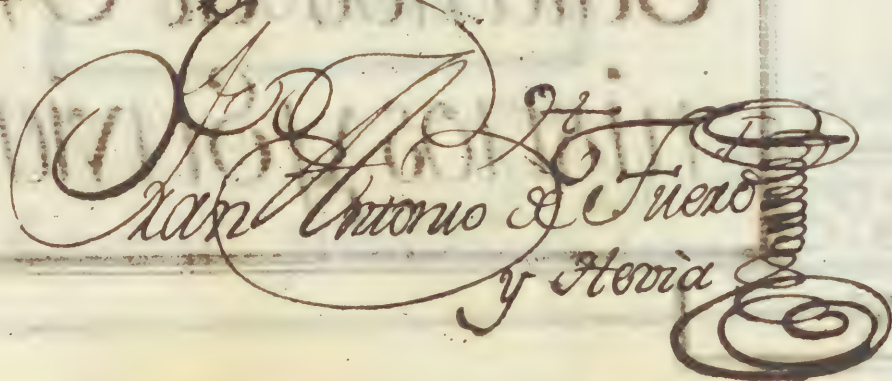 Juan Antonio de Fuero
y Hevià